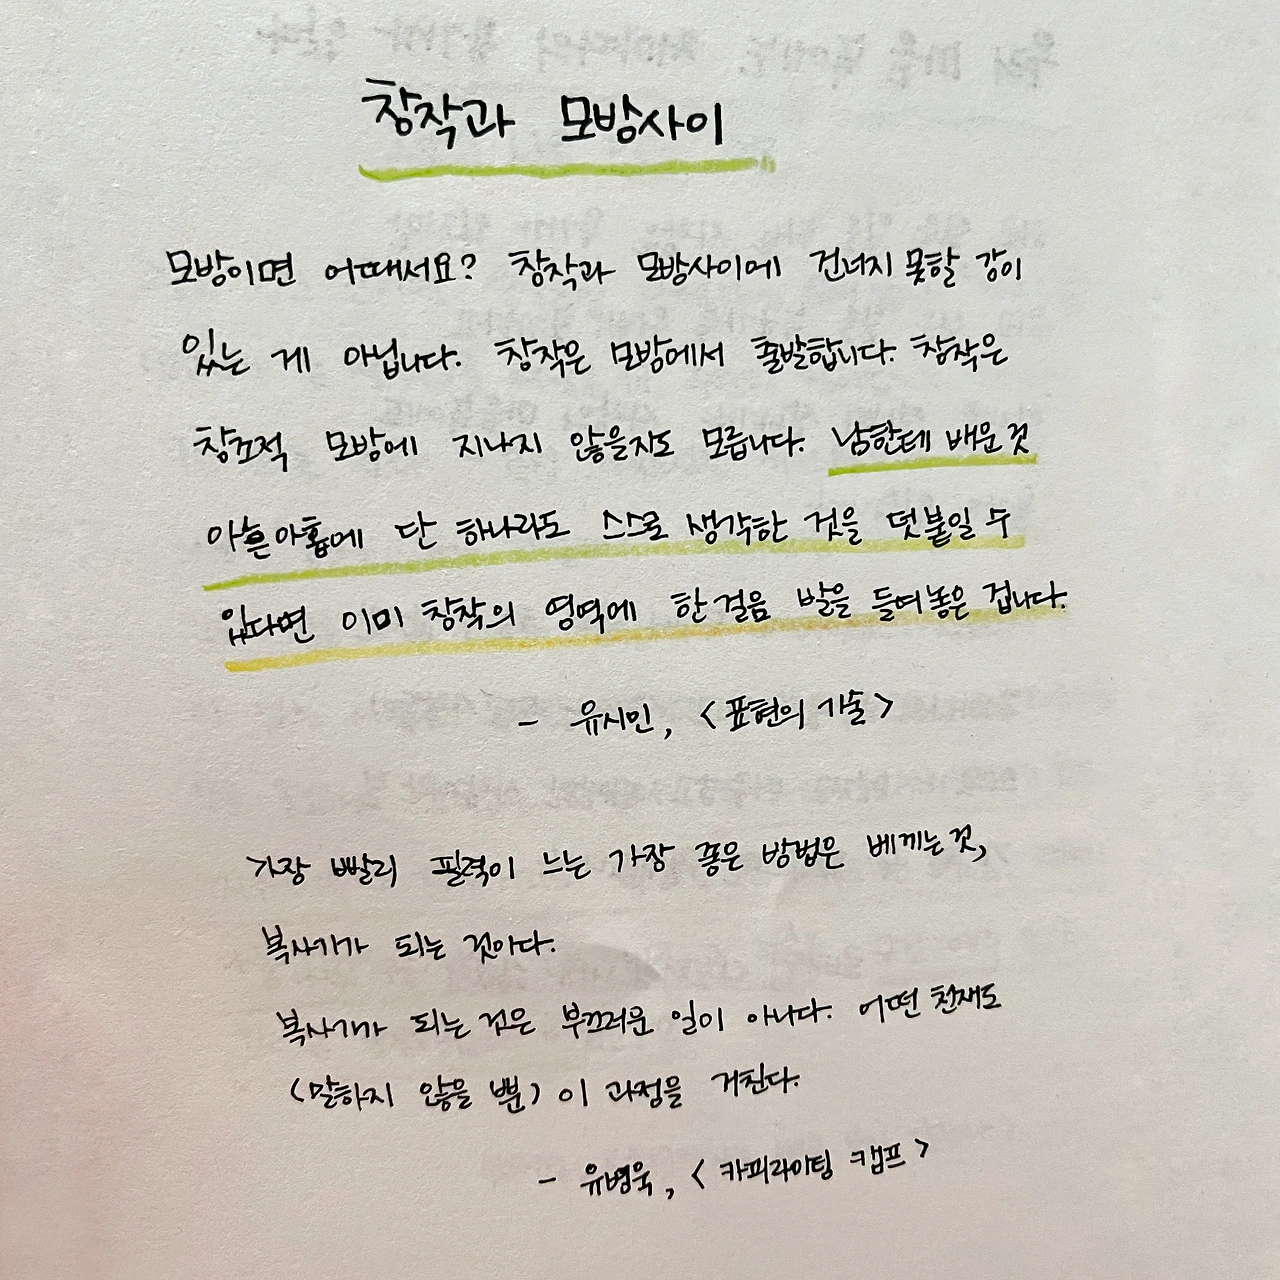 창작과 모방사이
모방이면 어때서요? 창작과 모방사이에 건너지 못할 강이
있는 게 아닙니다. 창작은 모방에서 출발합니다. 창작은
창조적 모방에 지나지 않을지도 모릅니다. 남한테 배운 것
아흔아홉에 단 하나라도 스스로 생각한 것을 덧붙일 수
있다면 이미 창작의 영역에 한 걸음 발을 들여놓은 겁니다.
- 유시민, <표현의 기술>
가장 빨리 필력이 느는 가장 좋은 방법은 베끼는 것,
복사기가 되는 것이다.
복사기가 되는 것은 부끄러운 일이 아니다. 어떤 천재도
(말하지 않을 뿐) 이 과정을 거친다.
- 유병욱, <카피라이팅 캠프>